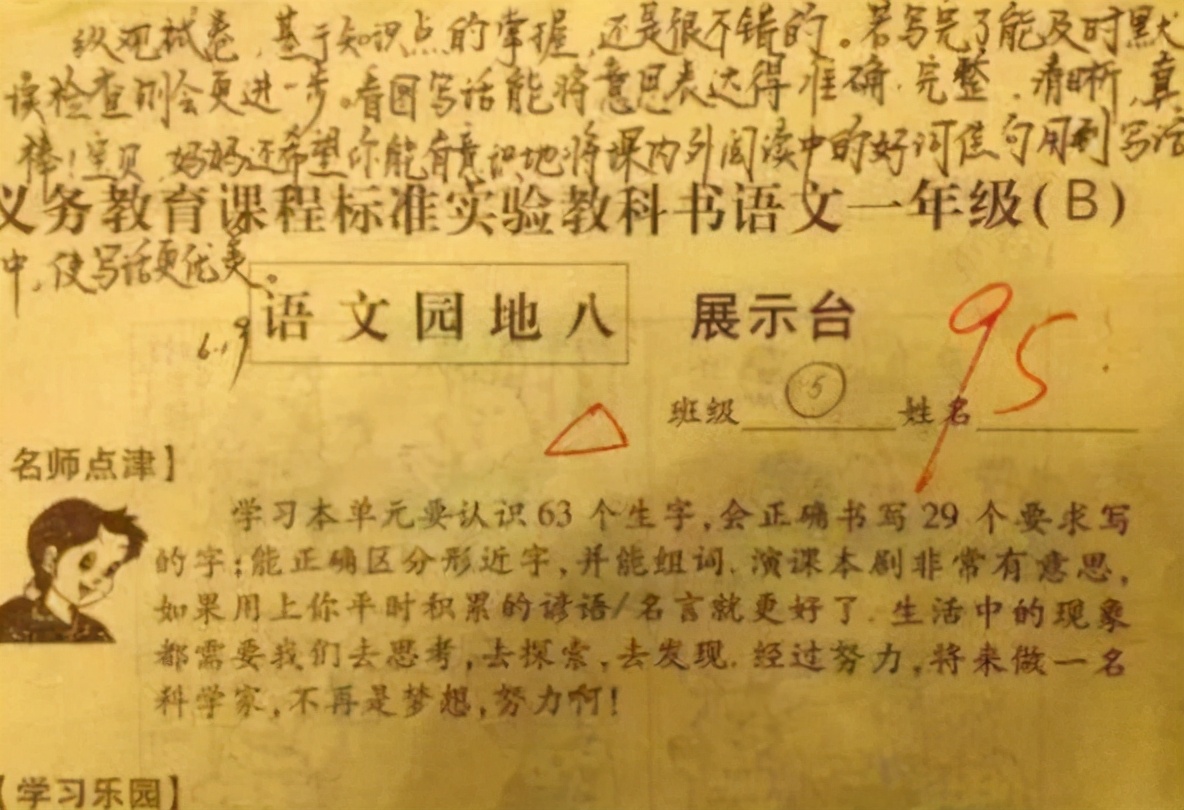 纵观试卷,基于知识点的掌握,还是很不错的。若写完了能及时默
读检查则会更进一步。看图写话能将意思表达得准确.完整.清晰,真
棒!宝贝,妈妈还希望你能有意识地将课内外阅读中的好词佳句用到写话
义务教育课程标准实验教科书语文一年级(B)
中,使写话更优美。
语文园地八 展示台
6.19
95
班级 5 姓名
名师点津】
学习本单元要认识63个生字,会正确书写29个要求写
的字;能正确区分形近字,并能组词.演课本剧非常有意思,
如果用上你平时积累的谚语/名言就更好了.生活中的现象
都需要我们去思考,去探索,去发现.经过努力,将来做一名
科学家,不再是梦想,努力啊!
【学习乐园】